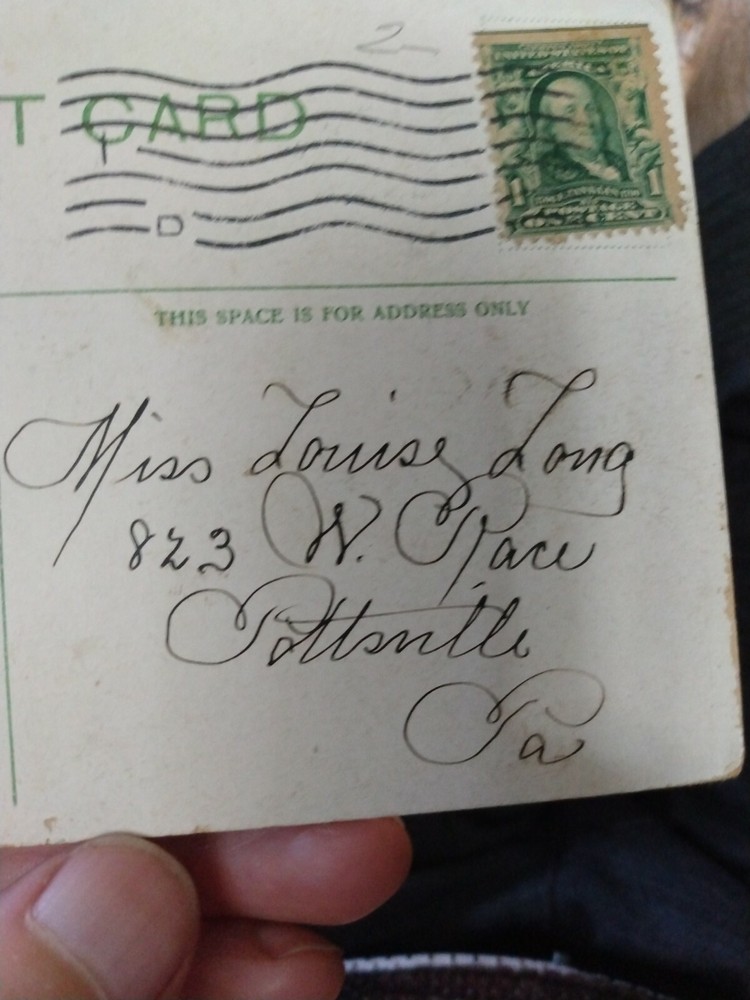 2
T CARD
D
1 1
ONE CENT
THIS SPACE IS FOR ADDRESS ONLY
Miss Louise Long
823 W. Race
Pottsville
Pa